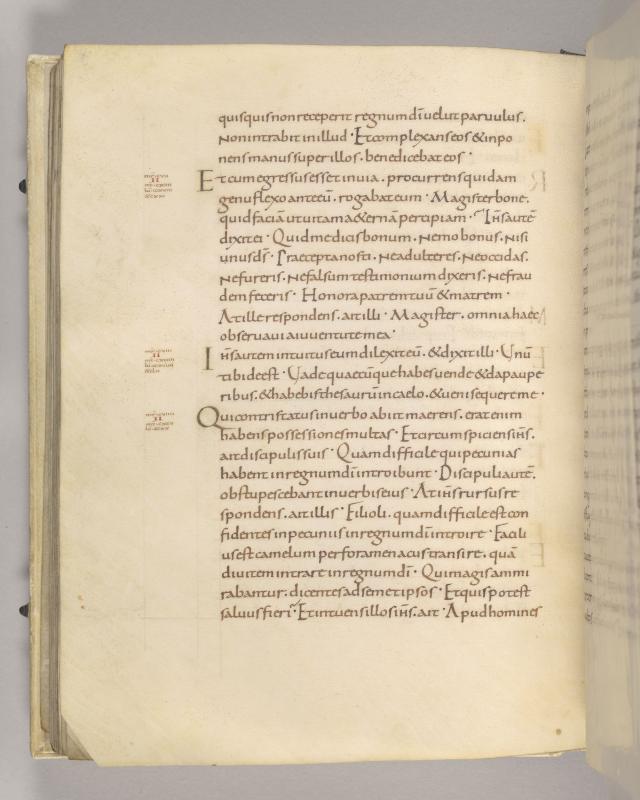 quisquis non receperit regnum dī uelut paruulus.
Non intrabit in illud · Et complexans eos & inpo
nens manus super illos. benedicebat eos ·
Et cum egressus esset in uia. procurrens quidam
genu flexo ante eū. rogabat eum · Magister bone.
quid faciā ut uitam a&ernā percipiam · Ihs autē
dixit ei · Quid me dicis bonum. Nemo bonus. Nisi
unus ds̄ · Praecepta nosti. Ne adulteres. Ne occidas.
Ne fureris. Ne falsum testimonium dixeris. Ne frau
dem feceris · Honora patrem tuū & matrem ·
At ille respondens. ait illi · Magister. omnia haec
obseruaui a iuuentute mea ·
Ihs autem intuitus eum dilexit eū. & dixit illi · Unū
tibi deest · Uade quaecūque habes uende & da paupe
ribus. & habebis thesaurū in caelo. & ueni sequere me ·
Qui contristatus in uerbo abiit maerens. erat enim
habens possessiones multas · Et circumspiciens ihs.
ait discipulis suis · Quam difficile qui pecunias
habent in regnum dī introibunt · Discipuli autē.
obstupescebant in uerbis eius · At ihs rursus re
spondens. ait illis · Filioli. quam difficile est con
fidentes in pecuniis in regnum dī introire · Facili
us est camelum per foramen acus transire. quā
diuitem intrare in regnum dī · Qui magis ammi
rabantur. dicentes ad semetipsos · Et quis potest
saluus fieri · Et intuens illos ihs. ait · Apud homines